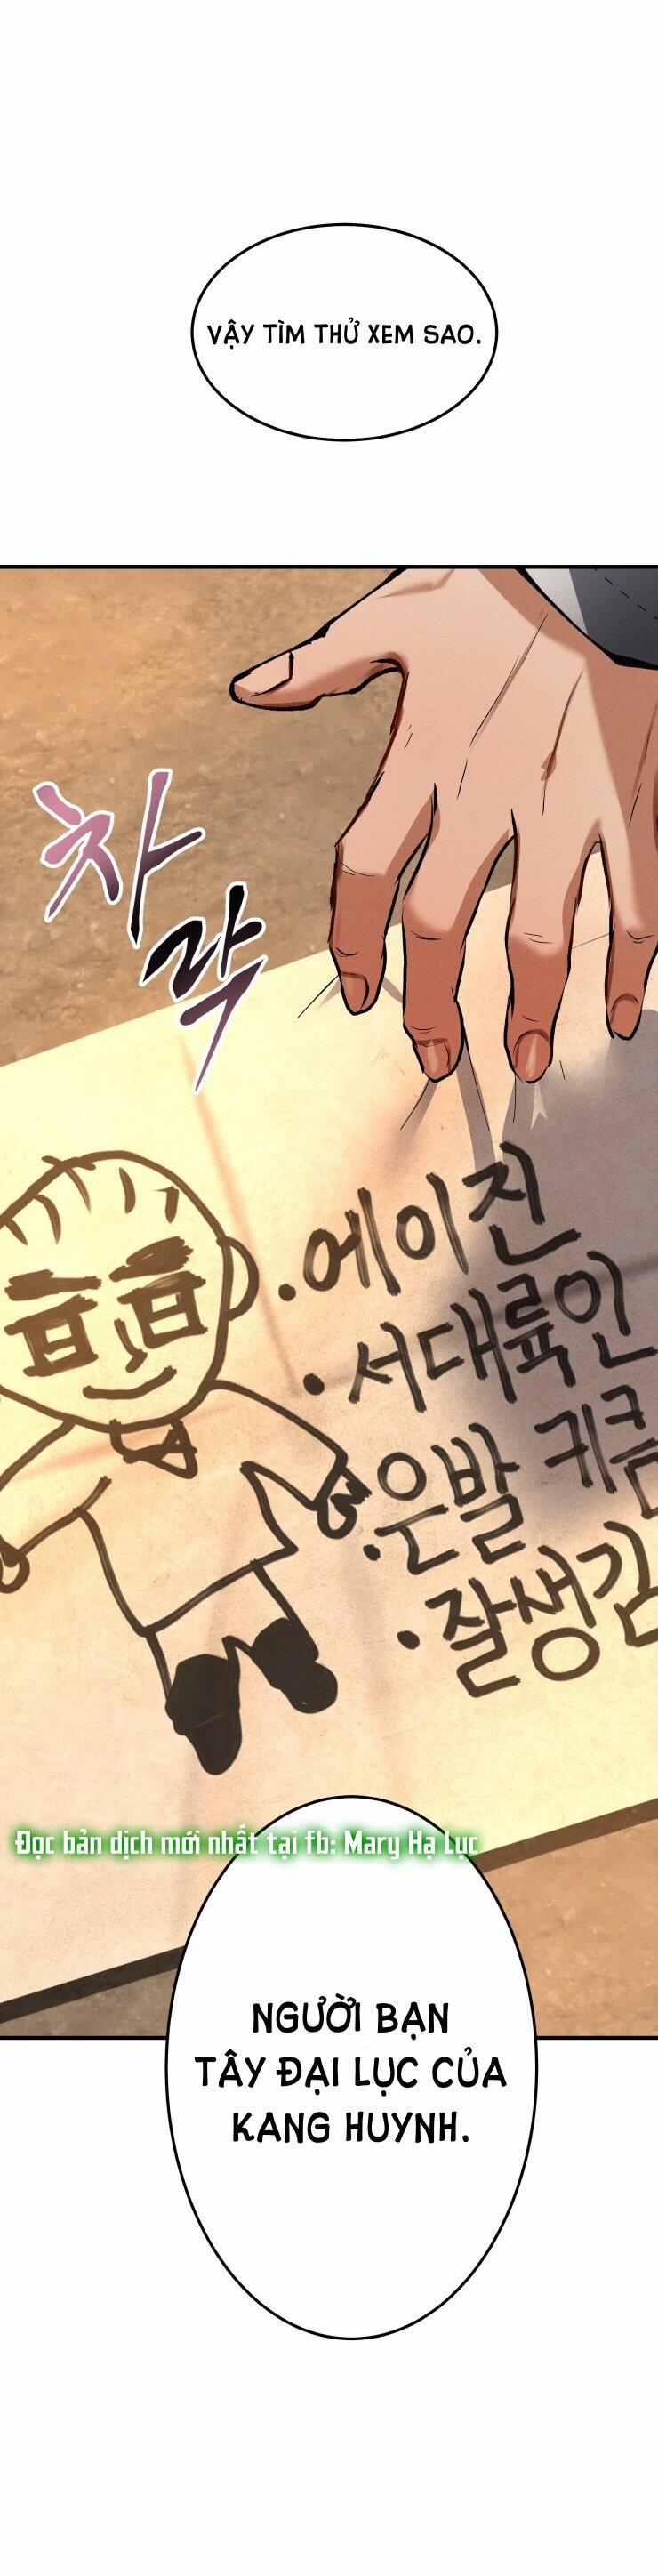 VẬY TÌM THỬ XEM SAO.
차락
·에이진
·서대륙인
·은발 귀큼
·잘생김
Đọc bản dịch mới nhất tại fb: Mary Hạ Lục
NGƯỜI BẠN
TÂY ĐẠI LỤC CỦA
KANG HUYNH.